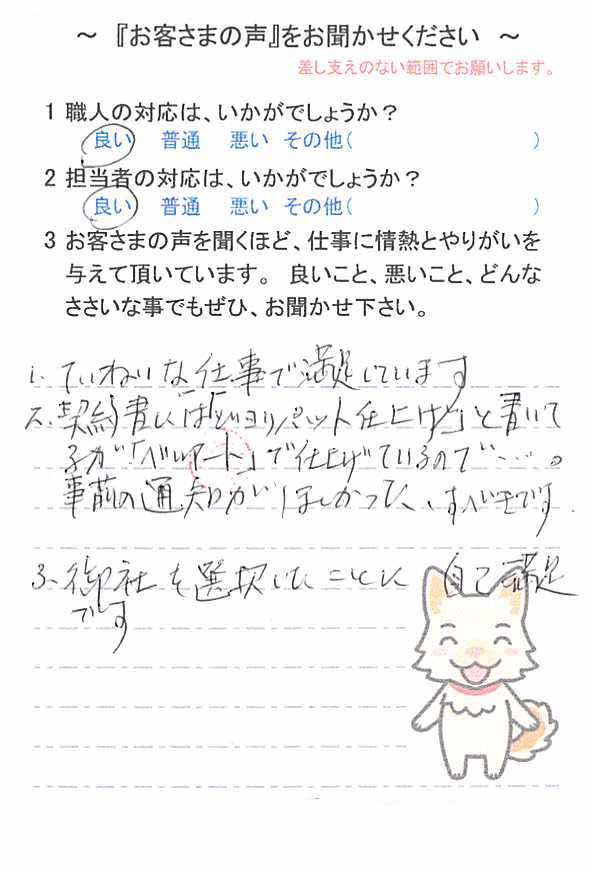 ～ 『お客さまの声』をお聞かせください ～
差し支えのない範囲でお願いします。
1 職人の対応は、いかがでしょうか？
良い 普通 悪い その他( )
2 担当者の対応は、いかがでしょうか？
良い 普通 悪い その他( )
3 お客さまの声を聞くほど、仕事に情熱とやりがいを
与えて頂いています。 良いこと、悪いこと、どんな
ささいな事でもぜひ、お聞かせ下さい。
1. ていねいな仕事で満足しています
2. 契約書には「 仕上げ」と書いて
るが「ベルアート」で仕上げているので……。
事前の通知がほしかった、すべきです.
3. 御社を選択したことに 自己満足
です